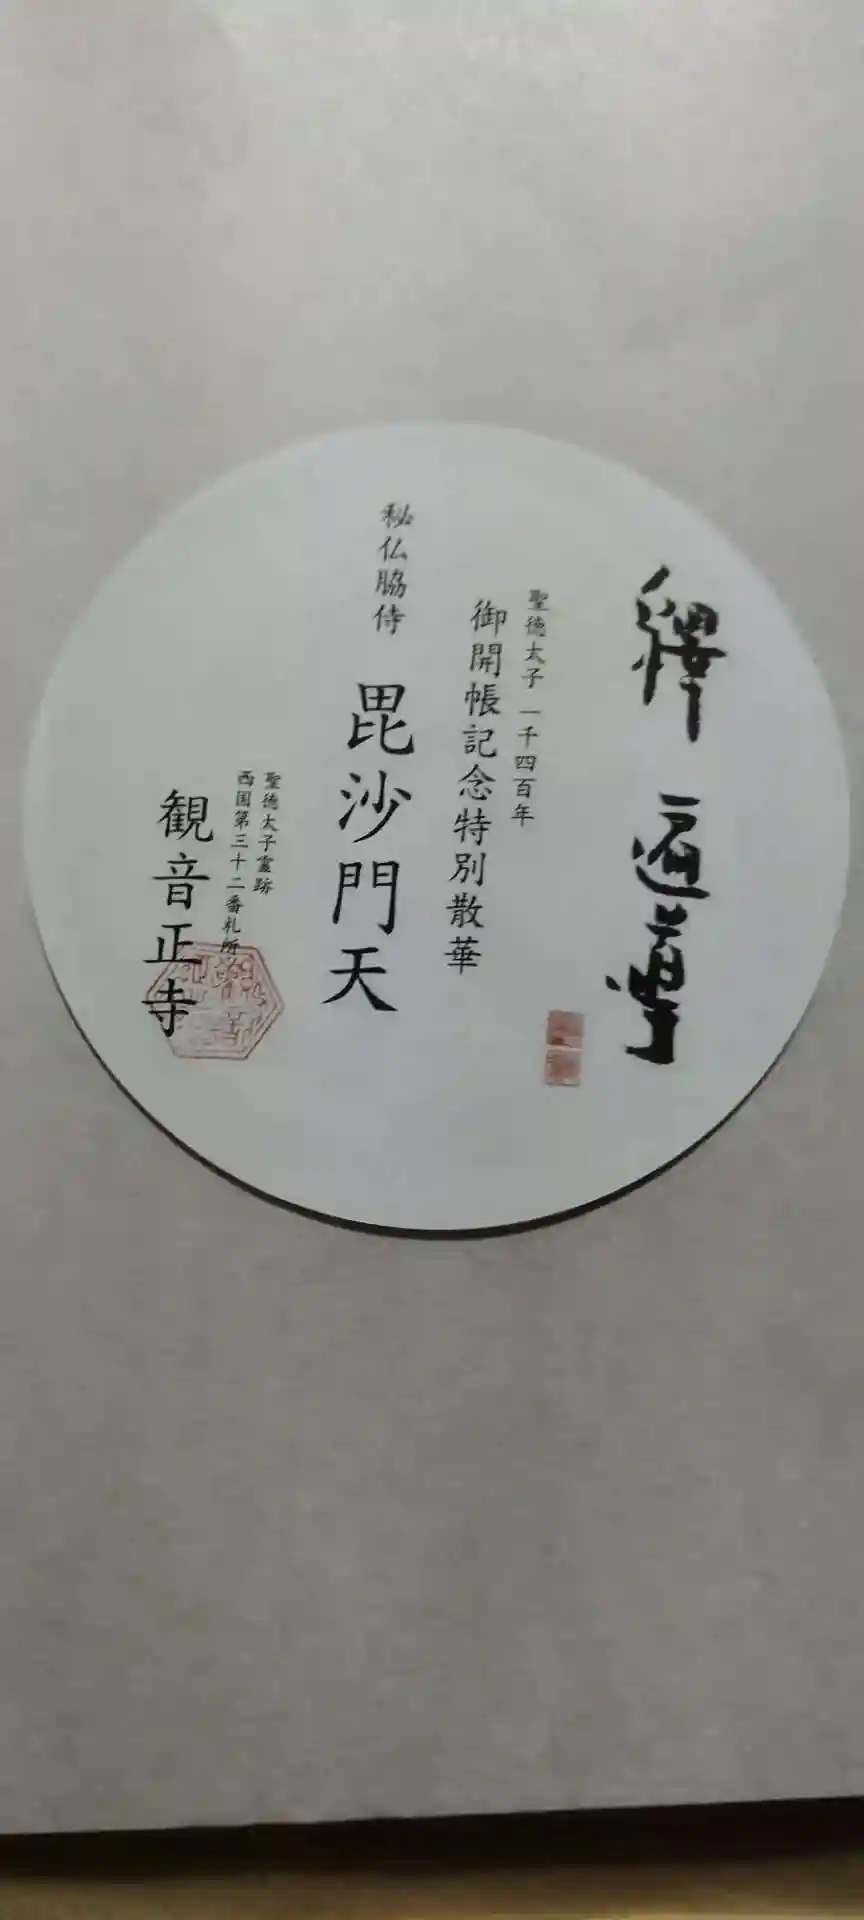 釋
聖徳太子 一千四百年
御開帳記念特別散華
秘仏脇侍 毘沙門天
聖徳太子霊跡
西国第三十二番札所
観音正寺